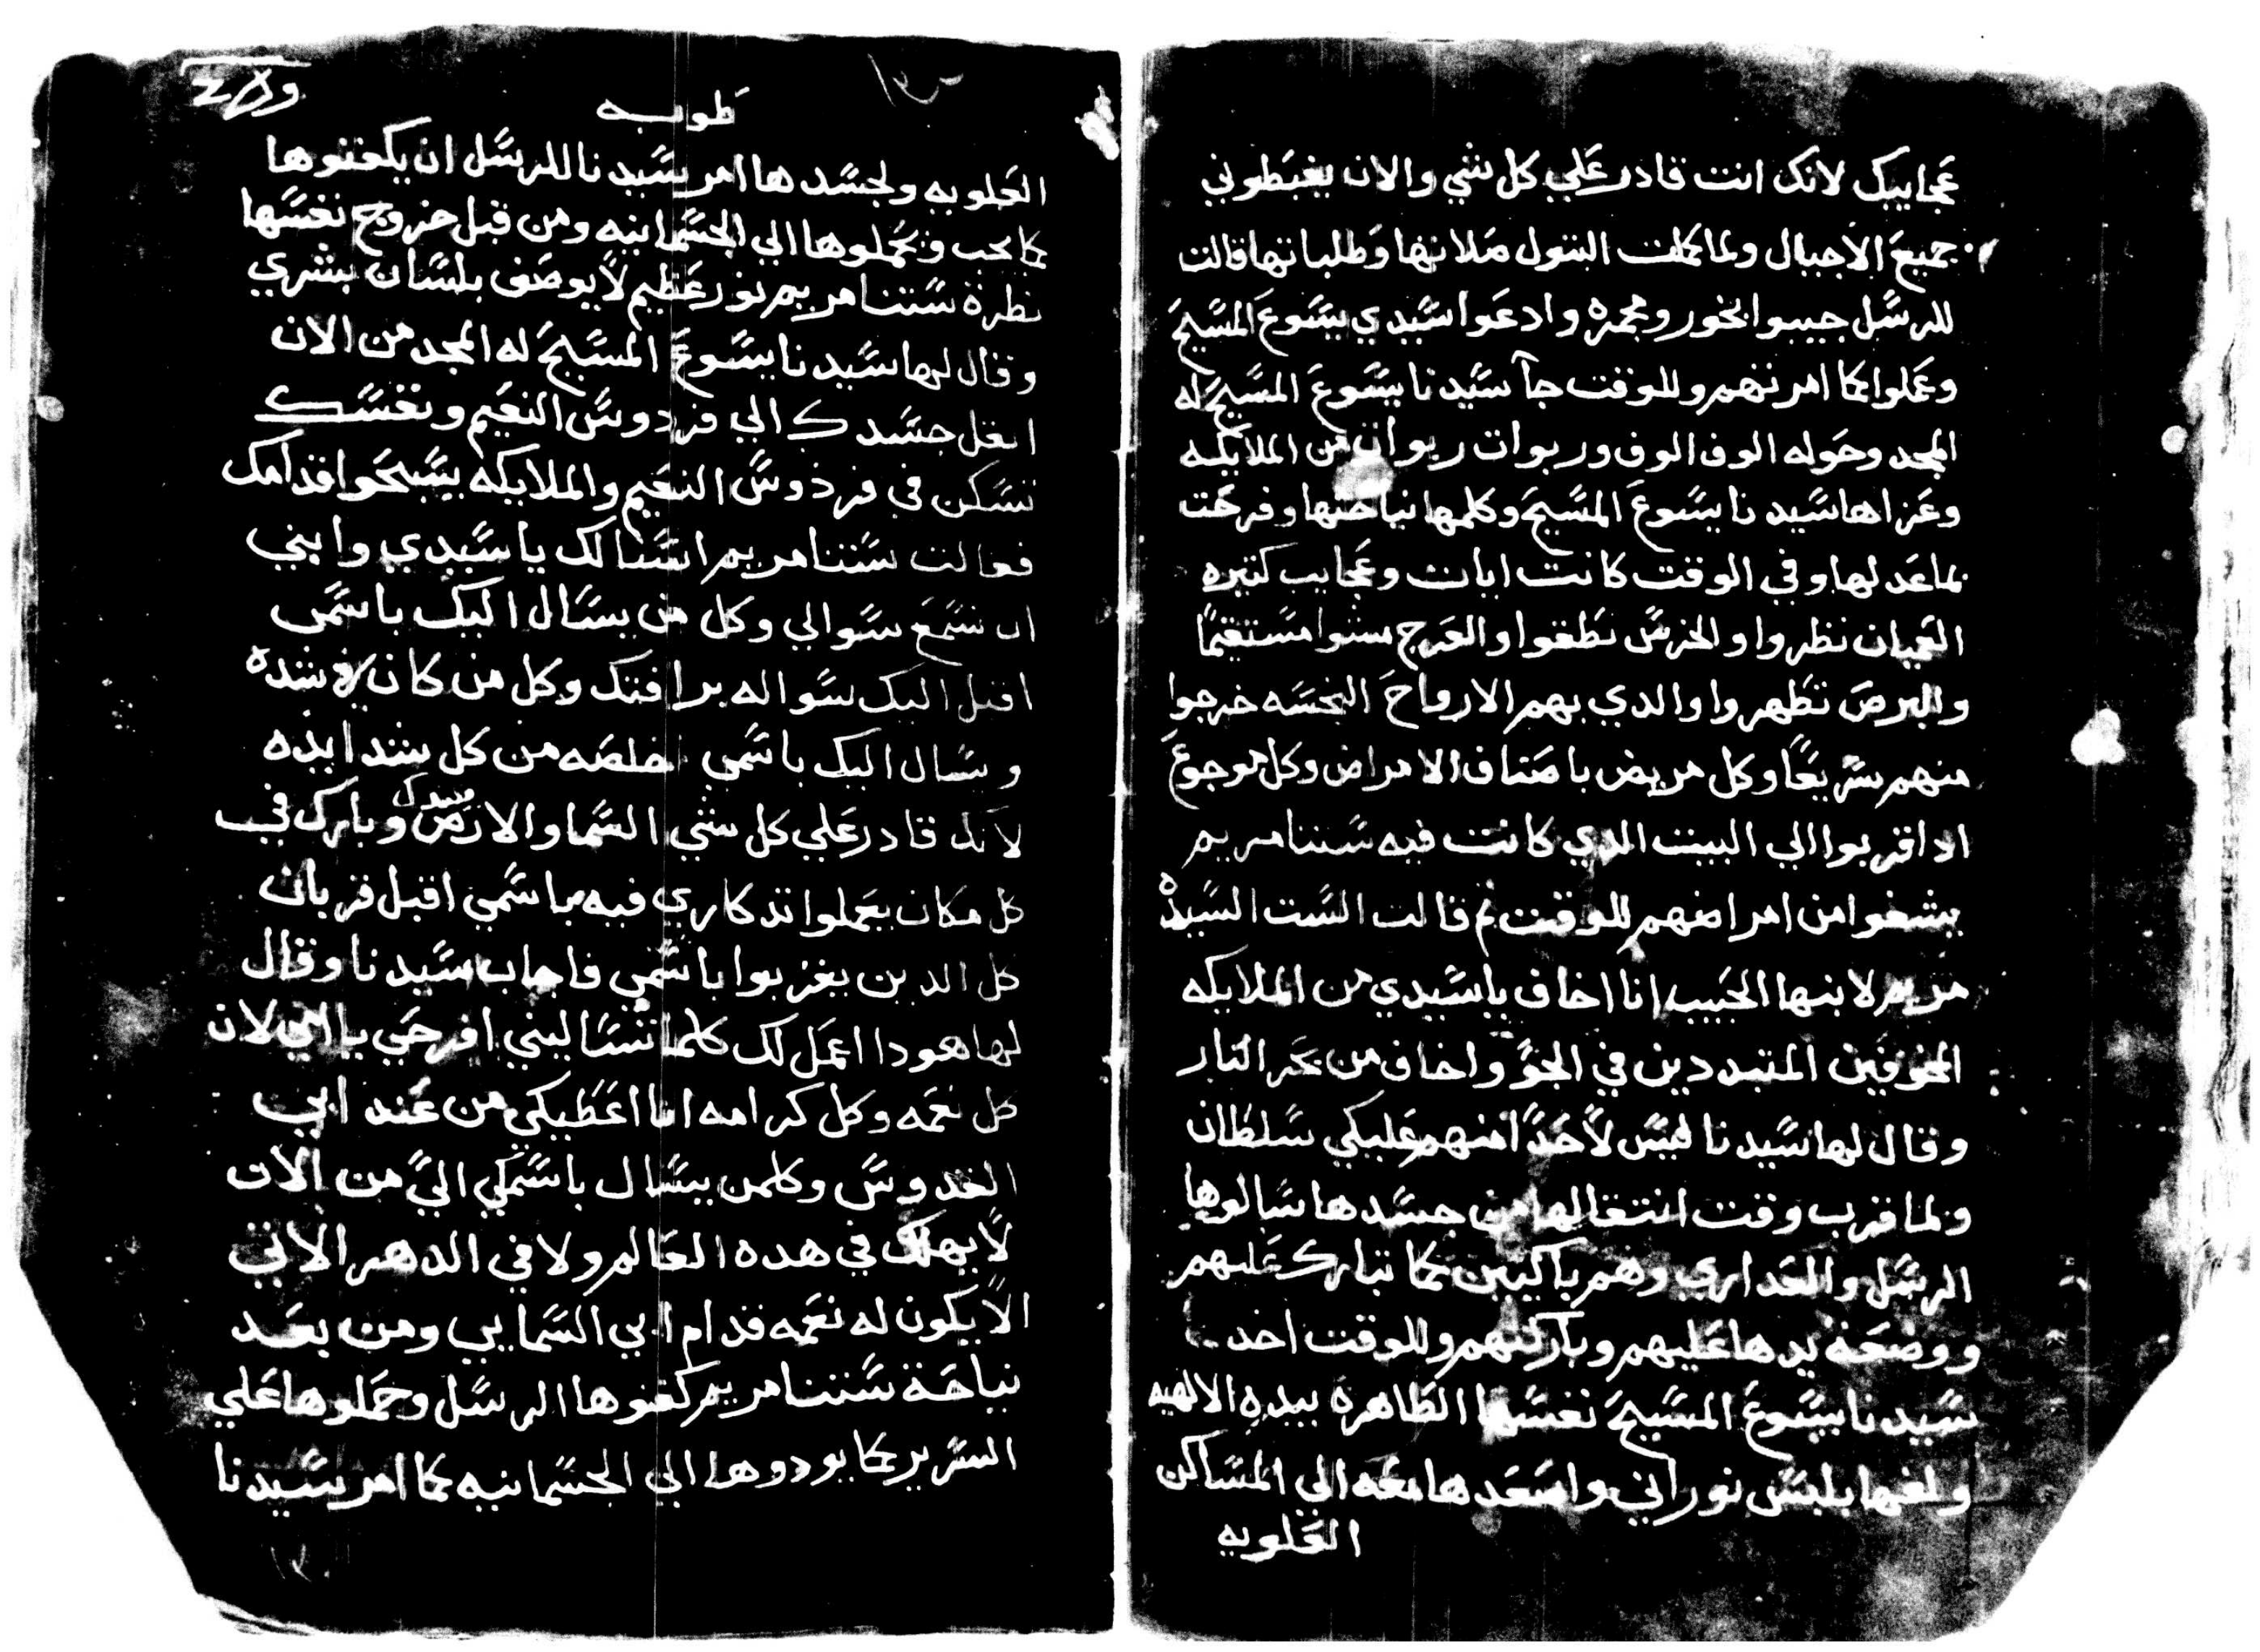 عجايبك لانك انت قادر علي كل شي والان يغبطوني
جميع الاجيال ولما كملت البتول صلاتها وطلباتها قالت
للرسل جيبوا بخور ومجمره وادعوا سيدي يسوع المسيح
وعملوا كما امرتهم وللوقت جآ سيدنا يسوع المسيح له
المجد وحوله الوف الوف وربوات ربوات من الملايكه
وعزاها سيدنا يسوع المسيح وكلمها نياحتها وفرحت
بماعد لها وفي الوقت كانت ايات وعجايب كتيره
العميان نظروا والخرس نطقوا والعرج مشوا مستقيمًا
والبرص تطهروا والدي بهم الارواح النجسه خرجوا
منهم سريعًا وكل مريض باصناف الامراض وكل موجوع
ادا قربوا الي البيت الدي كانت فيه ستنا مريم
يشفوا من امراضهم للوقت ثم قالت الست السيدة
مريم لابنها الحبيب انا اخاف ياسيدي من الملايكه
المخوفين المتبددين في الجو واخاف من بحر النار
وقال لها سيدنا ليس لأحدًا منهم عليكي سلطان
ولما قرب وقت انتقالها من جسدها سالوها
الرسل والعداري وهم باكيين كما تبارك عليهم
ووضعة يدها عليهم وباركتهم وللوقت اخد
سيدنا يسوع المسيح نفسها الطاهرة بيده الالهيه
ولفها بلبس نوراني واصعدها معه الي المساكن
العلويه
طوبه
العلويه ولجسدها امر سيدنا للرسل ان يكفنوها
كما يجب ويحملوها الي الجسمانيه ومن قبل خروج نفسها
نظرة ستنا مريم نور عظيم لا يوصف بلسان بشري
وقال لها سيدنا يسوع المسيح له المجد من الان
انقل جسدك الي فردوس النعيم ونفسك
تسكن في فردوس النعيم والملايكه يسبحوا قدامك
فقالت ستنا مريم اسالك ياسيدي وابني
ان تسمع سوالي وكل من يسال اليك باسمى
اقبل اليك سواله برافتك وكل من كان في شده
ويسال اليك باسمي خلصه من كل شدايده
لانك قادر علي كل شي السما والارض بيدك وبارك في
كل مكان يعملوا تدكاري فيه باسمي اقبل قربان
كل الدين يقربوا باسمي فاجاب سيدنا وقال
لها هودا اعمل لك كلما تساليني افرحي يا امي لان
كل نعمه وكل كرامه انا اعطيكي من عند ابي
القدوس وكلمن يسال باسمكي اليَّ من الان
لا يهلك في هده العالم ولا في الدهر الاتي
الا يكون له نعمه قدام ابي السمايي ومن بعد
نياحة ستنا مريم كفنوها الرسل وحملوها علي
السرير كما يودوها الي الجسمانيه كما امر سيدنا